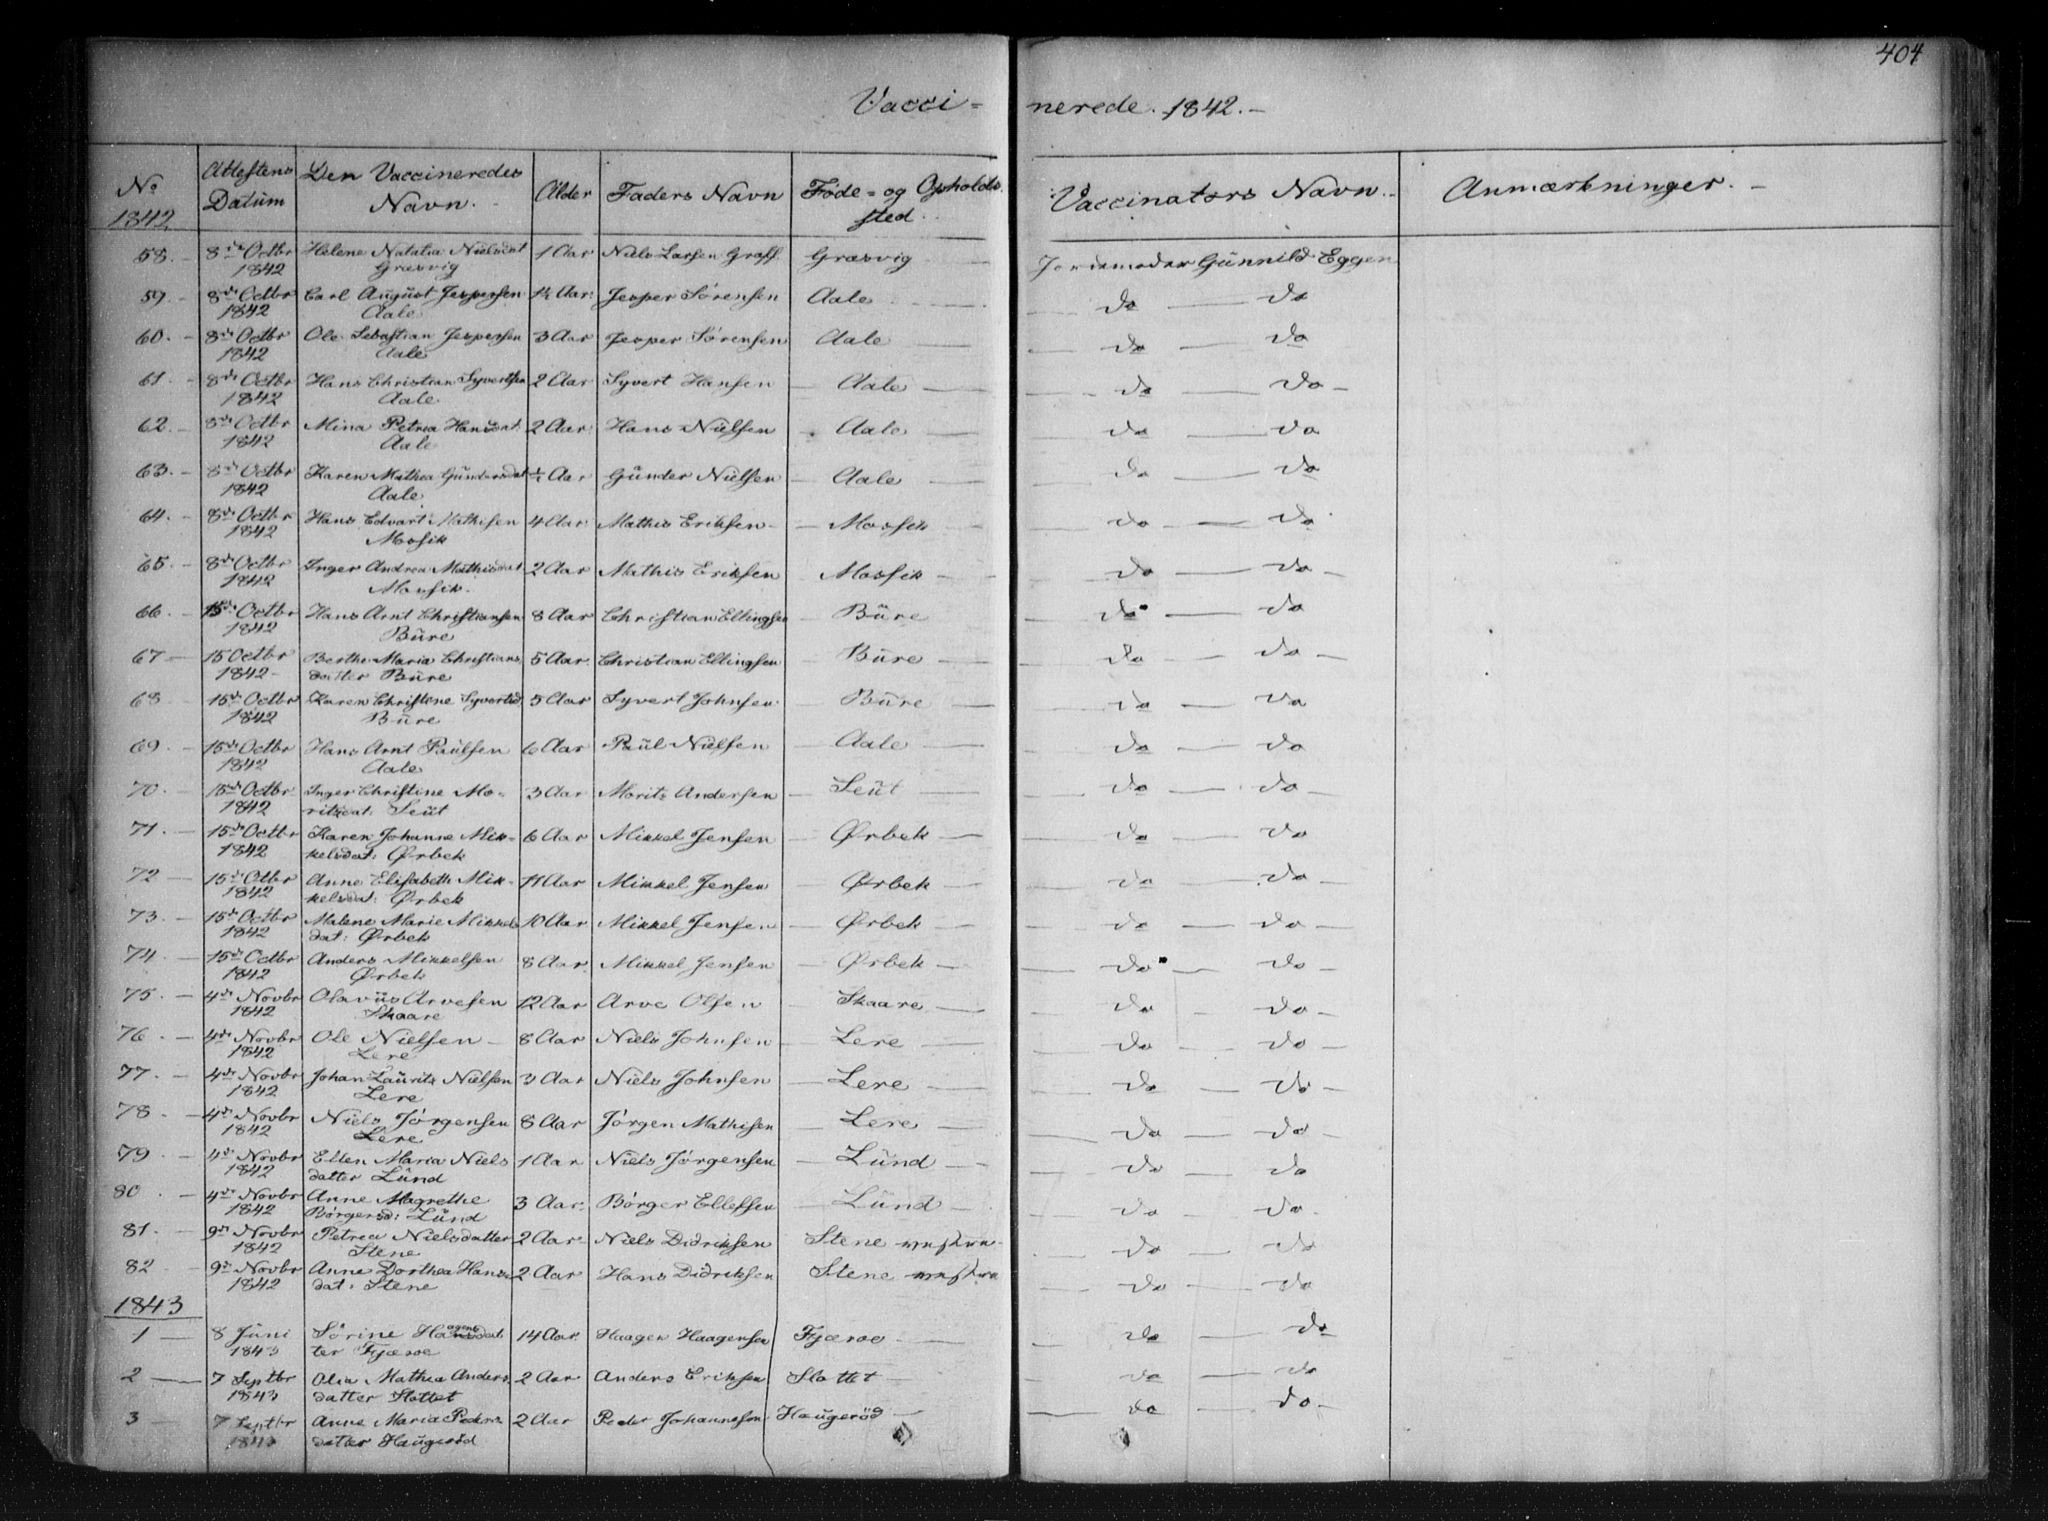 404
Vacci - nerede. 1842. -
No 1842 | Attestens Datum | Den Vaccineredes Navn. | Alder | Faders Navn | Føde- og Opholds sted. | Vaccinators Navn. | Anmærkninger. -
58. - 8de Octbr 1842 Helene Natalia Nielsdat Græsvig 1 Aar Niels Larsen Graff Græsvig Jordemoder Gunnild Eggen
59. - 8de Octbr 1842 Carl August Jespersen Aale 1½ Aar Jesper Sørensen Aale do - do
60. - 8de Octbr 1842 Ole Sebastian Jespersen Aale 3 Aar Jesper Sørensen Aale do - do
61. - 8de Octbr 1842 Hans Christian Syvertsen Aale 2 Aar Syvert Hansen - Aale - do - do -
62. - 8de Octbr 1842 Mina Petrea Hansdat: Aale 2 Aar Hans Nielsen Aale - do - do
63. - 8de Octbr 1842 Karen Mathea Gundersdat Aale Aar Gunder Nielsen - Aale - do - do
64. - 8de Octbr 1842 Hans Edvart Mathisen Mosfik 4 Aar Mathis Eriksen - Mosfik - do - do
65. - 8de Octbr 1842 Inger Andrea Mathisdat Mosfik 2 Aar Mathis Eriksen - Mosfik - do - do -
66. - 15de Octbr 1842 Hans Arnt Christiansen Bure 8 Aar Christian Ellingsen - Bure do - do
67 - 15 Octbr 1842 - Berthe Maria Christians datter Bure 5 Aar Christian Ellingsen - Bure - do - do -
68 - 15de Octbr 1842 Karen Christine Syvertsd Bure 5 Aar Syvert Johnsen Bure - do - do
69. - 15de Octbr 1842 Hans Arnt Paulsen Aale 6 Aar Paul Nielsen - Aale - do - do
70. - 15de Octbr 1842 Inger Christine Mo- ritzdat: Seut 3 Aar Morits Andersen - Seut - do - do -
71. - 15de Octbr 1842 Karen Johanne Mik- kelsdat: Ørbek 6 Aar Mikkel Jensen - Ørbek - do - do
72 - 15de Otbr 1842 Anne Elisabeth Mik- kelsdat: Ørbek 11 Aar Mikkel Jensen - Ørbek - do - do -
73. - 15de Octbr 1842 Malene Marie Mikkels dat: Ørbek 10 Aar Mikkel Jensen - Ørbek - do - do -
74. - 15de Octbr 1842 Anders Mikkelsen Ørbek 8 Aar Mikkel Jensen - Ørbek - do - do -
75. - 4de Novbr 1842 Olavus Arvesen Skaare 12 Aar Arve Olsen - Skaare - do - do -
76. - 4de Novbr 1842 Ole Nielsen - Lere 8 Aar Niels Johnsen - Lere - do - do -
77. - 4de Novbr 1842 Johan Laurits Nielsen Lere 3 Aar Niels Johnsen - Lere - do - do -
78. - 4de Novbr 1842 Niels Jørgensen Lere 8 Aar Jørgen Mathisen - Lere - do - do -
79. - 4de Novbr 1842 Ellen Maria Niels datter Lund 1 Aar Niels Jørgensen - Lund - do - do
80. - 4de Novbr 1842 Anne Magrethe Børgersd: Lund 3 Aar Børger Ellefsen - Lund - do - do
81. - 9de Novbr 1842 Petrea Nielsdatter Stene 2 Aar Niels Didriksen Stene do - do
82 - 9de Novbr 1842 Anne Dorthea Hans dat: Stene 2 Aar Hans Didriksen Stene do - do
1843
1 - 8 Juni 1843 Sørine Haagensdat ter Fjæroe 14 Aar Haagen Haagensen Fjæroe do - do
2 - 7 Septbr 1843 Olia Mathea Anders datter Slottet 2 Aar Anders Eriksen Slottet do - do
3 - 7 Septbr 1843 Anne Maria Peders datter Haugerød 2 Aar Peder Johannesen Haugerød - do - do -